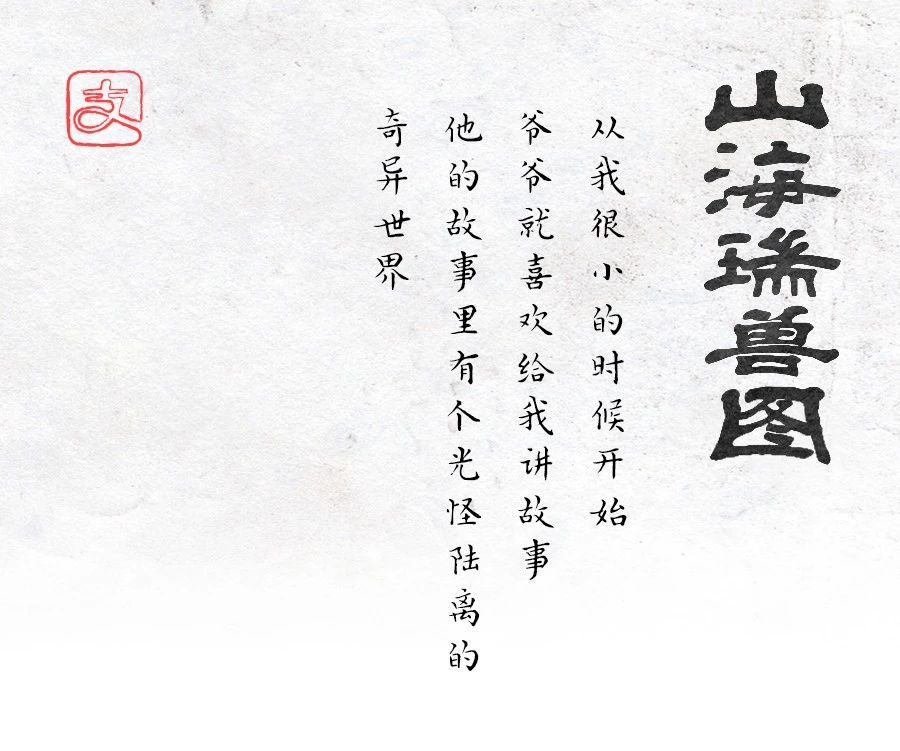 山海瑞兽图
从我很小的时候开始
爷爷就喜欢给我讲故事
他的故事里有个光怪陆离的
奇异世界
支